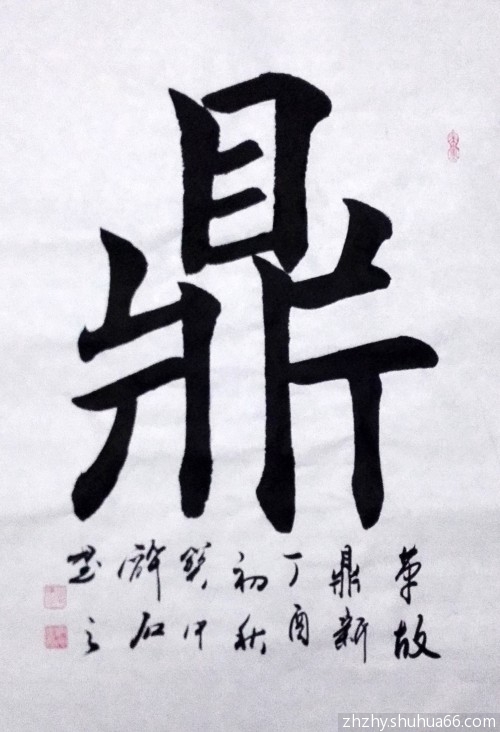 鼎
革故
鼎新
丁酉
初秋
石
书之
zhzhy.shuhua66.com